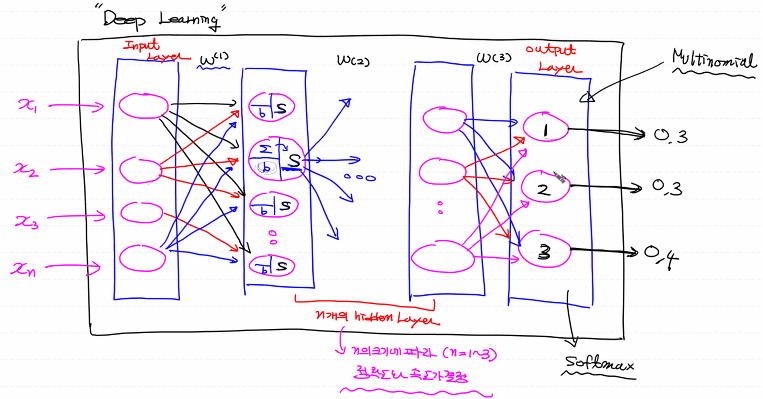 "Deep Learning"
Input Layer
W(1)
W(2)
W(3)
output Layer
Multinomial
x1
x2
x3
xn
b S
Σ b S
b S
b S
1
2
3
0.3
0.3
0.4
n개의 hidden Layer
n의 크기에 따라 (n=1~3)
정확도와 속도가 결정
Softmax